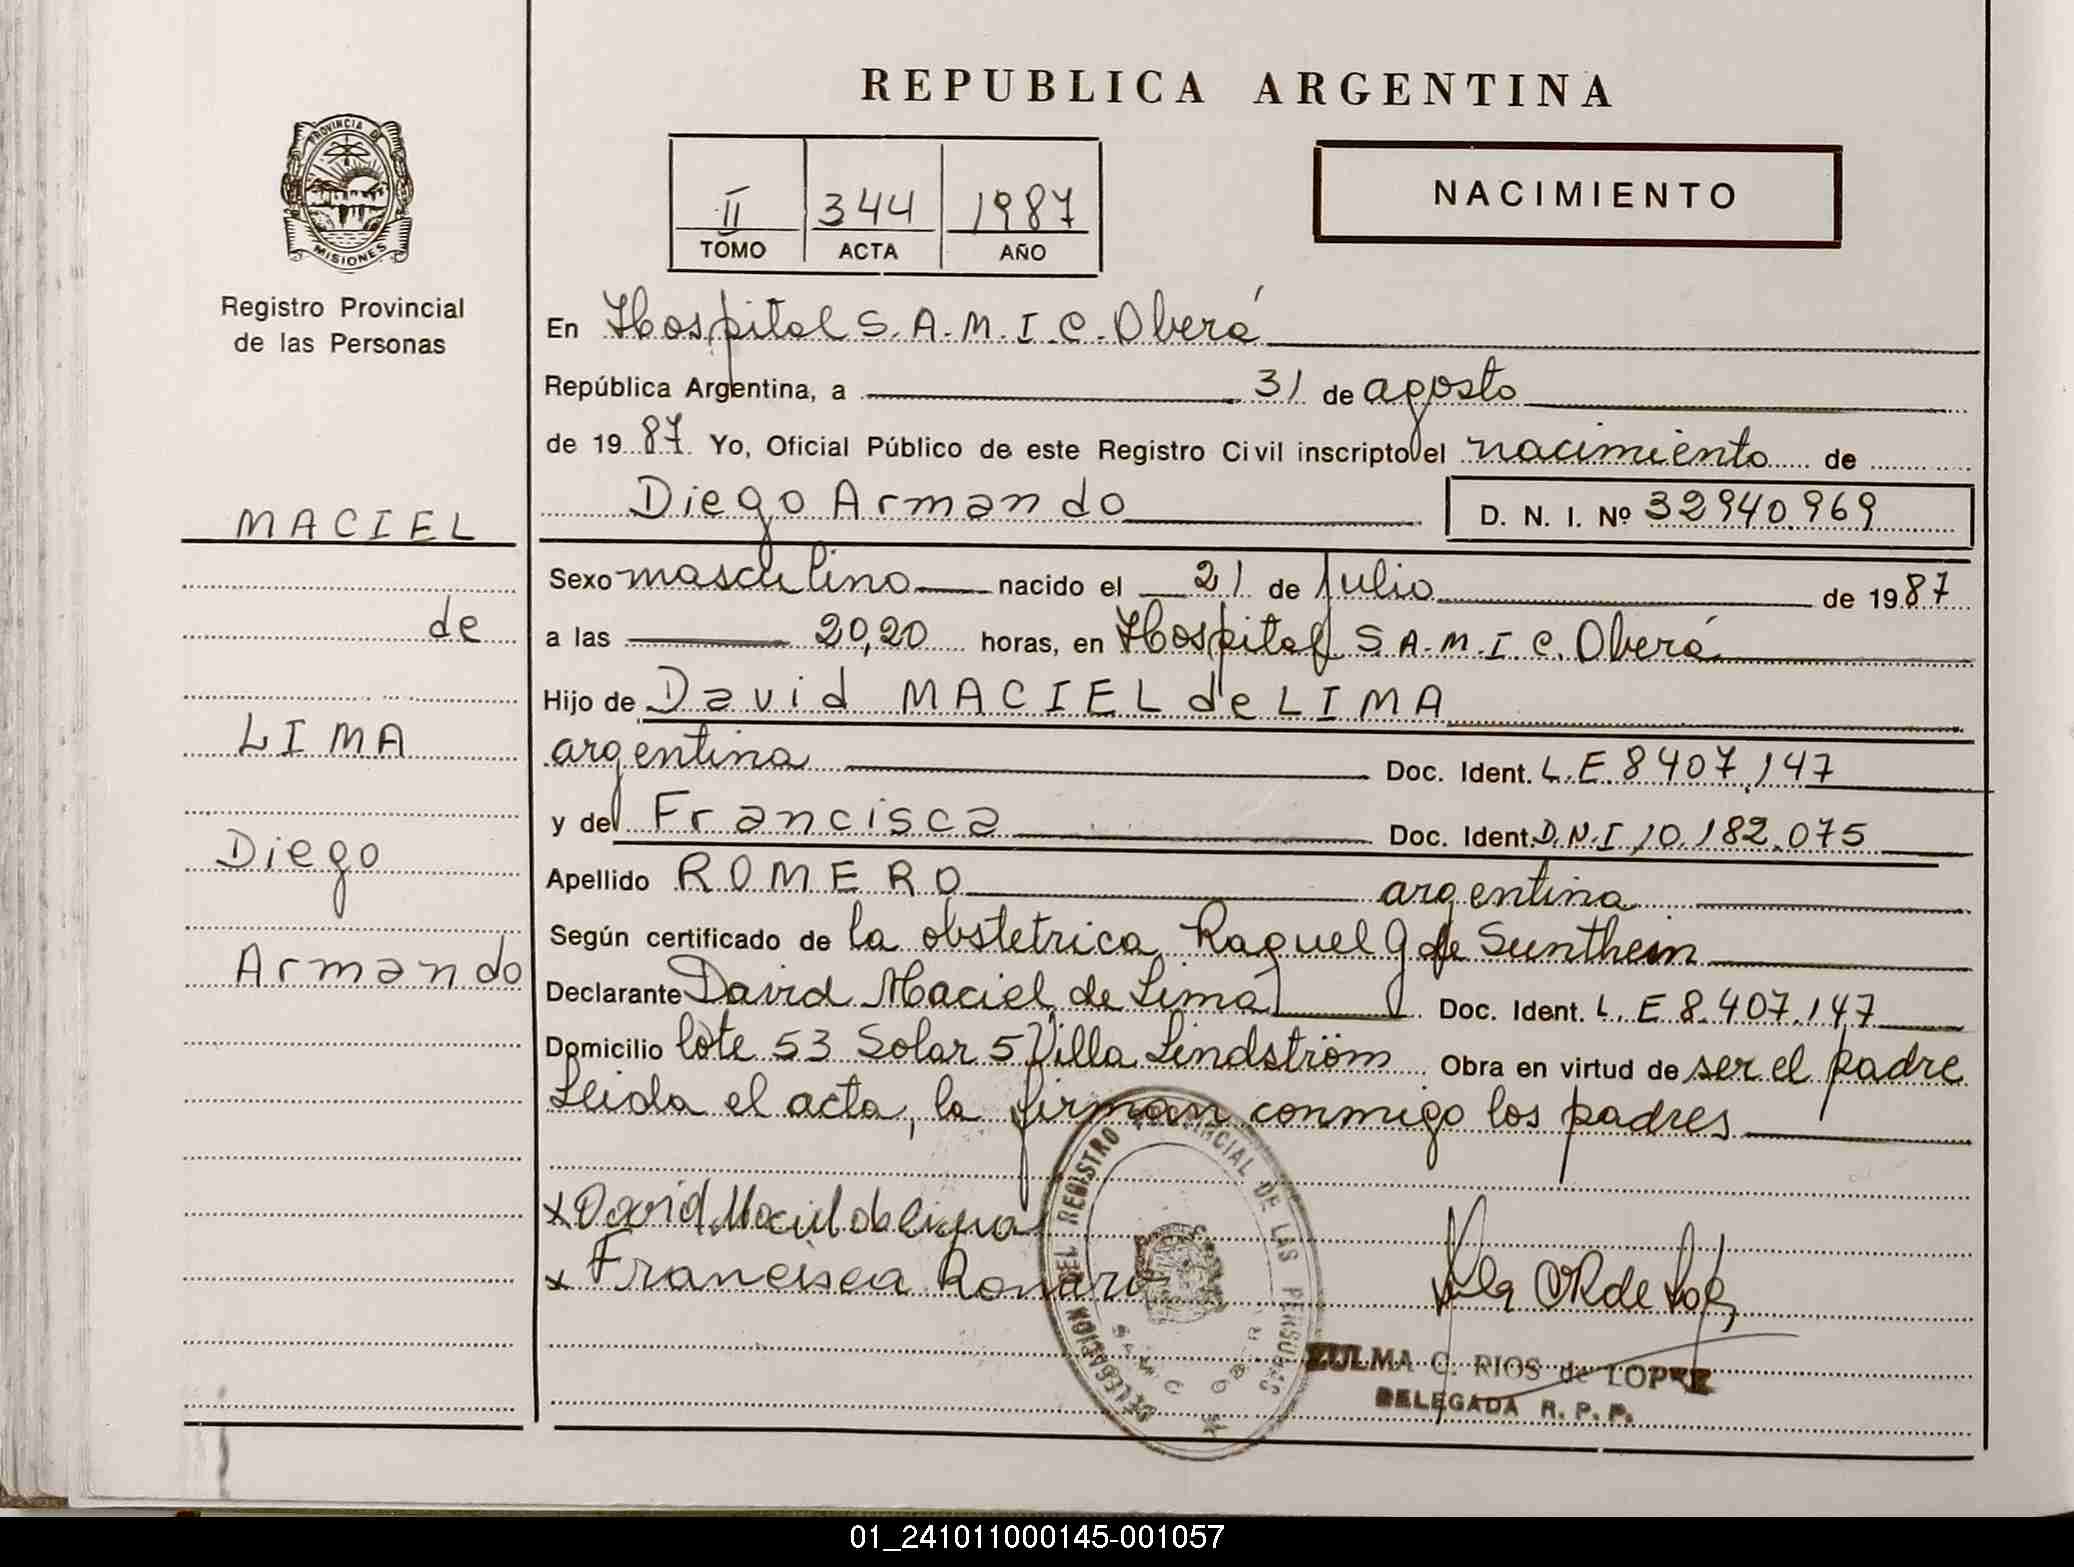 REPUBLICA ARGENTINA
PROVINCIA DE
MISIONES
Registro Provincial
de las Personas
II 344 1987
TOMO ACTA AÑO
NACIMIENTO
En Hospital S.A.M.I.C. Oberá
República Argentina, a 31 de agosto
de 1987. Yo, Oficial Público de este Registro Civil inscripto el nacimiento de
Diego Armando D. N. I. Nº 32940.969
MACIEL
de
LIMA
Diego
Armando
Sexo masculino nacido el 21 de Julio de 1987
a las 20,20 horas, en Hospital S.A.M.I.C. Oberá
Hijo de David MACIEL de LIMA
argentina Doc. Ident. L.E. 8407.147
y de Francisca Doc. Ident. D.N.I 10.182.075
Apellido ROMERO argentina
Según certificado de la obstetrica Raquel G de Sunthein
Declarante David Maciel de Lima Doc. Ident. L.E 8.407.147
Domicilio lote 53 Solar 5 Villa Lindström Obra en virtud de ser el padre
Leida el acta, la firman conmigo los padres
x David Maciel de Lima
x Francisca Romero
DELEGACION DEL REGISTRO PROVINCIAL DE LAS PERSONAS
ZULMA C. RIOS de LOPEZ
DELEGADA R. P. P.
01_241011000145-001057